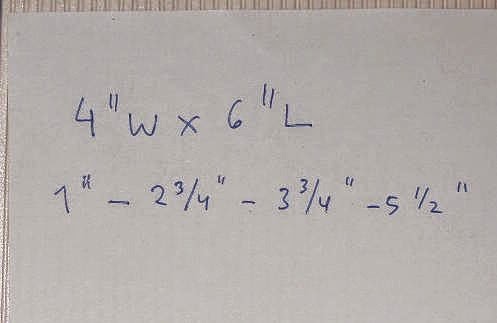 4" W x 6" L
1" - 2 3/4" - 3 3/4" - 5 1/2"